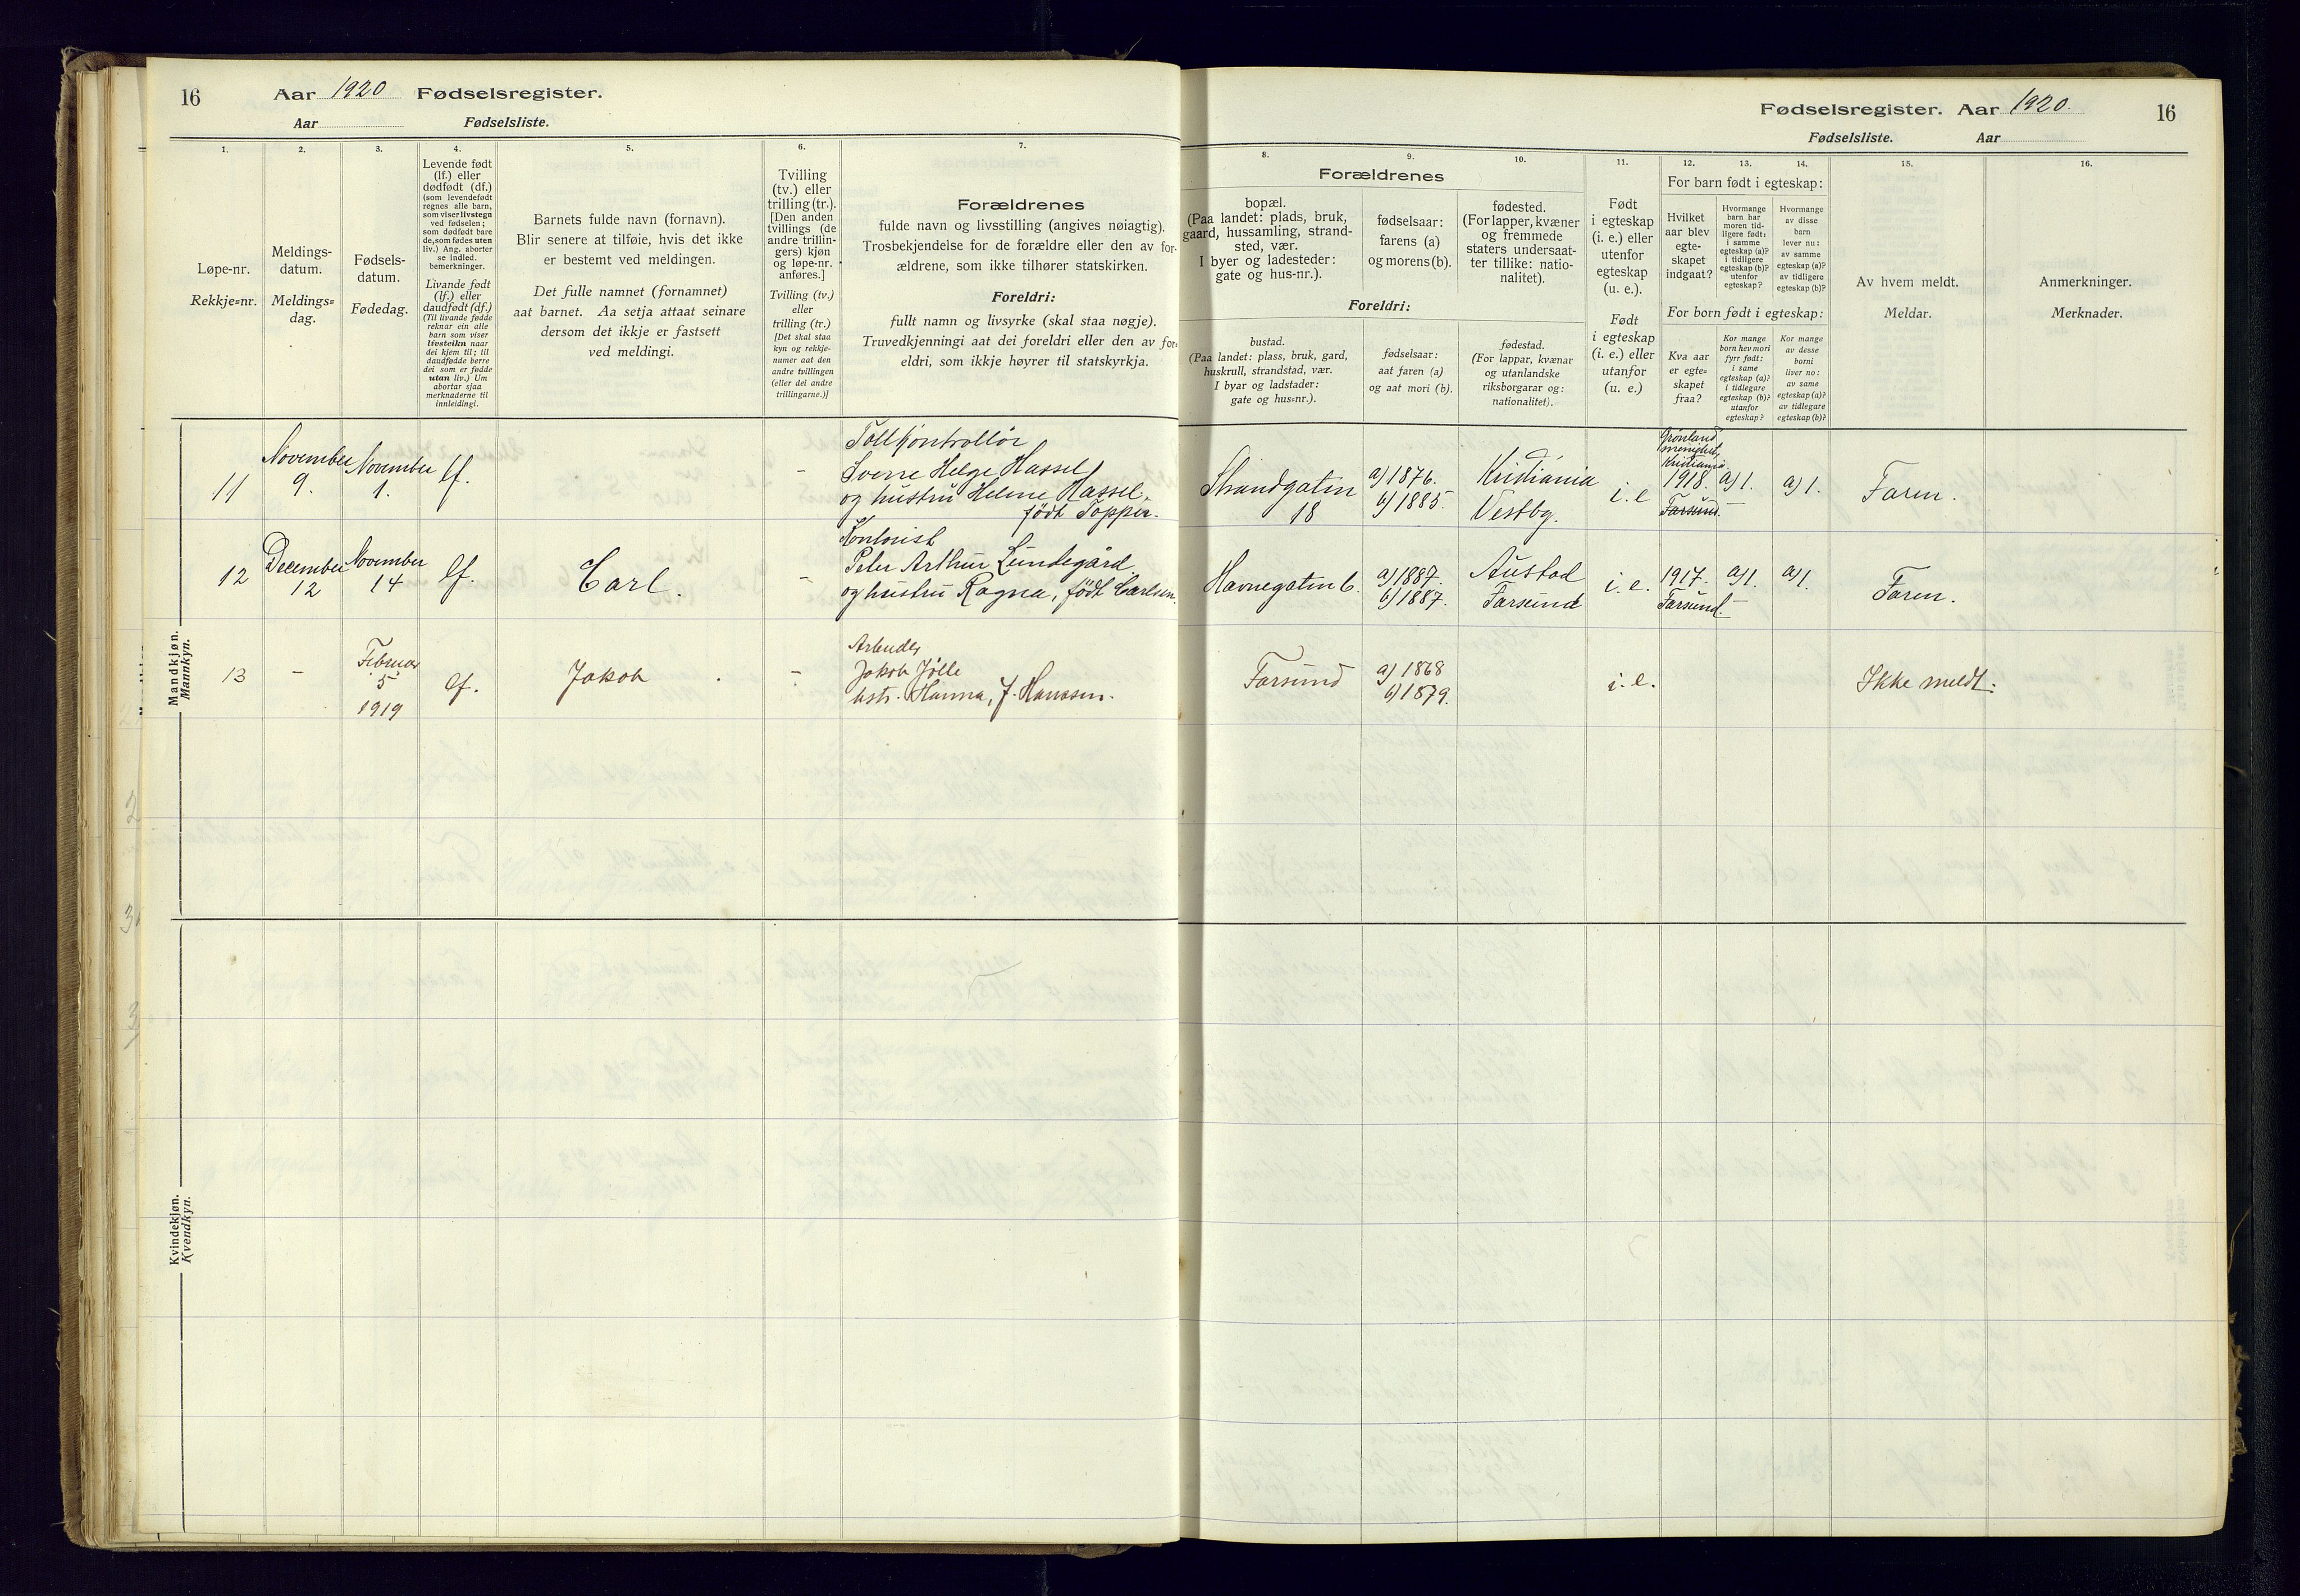 16
Aar 1920 Fødselsregister.
Aar Fødselsliste.
Fødselsregister. Aar 1920.
16
Fødselsliste. Aar
1.
2.
3.
4.
5.
6.
7.
8.
9.
10.
11.
12.
13.
14.
15.
16.
Løpe-nr.
Rekkje-nr.
Meldings-
datum.
Meldings-
dag.
Fødsels-
datum.
Fødedag.
Levende født
(lf.) eller
dødfødt (df.)
(som levendefødt
regnes alle barn,
som viser livstegn
ved fødselen;
som dødfødt bare
de, som fødes uten
liv.) Ang. aborter
se indled.
bemerkninger.
Livande født
(lf.) eller
daudfødt (df.)
(Til livande fødde
reknar ein alle
barn som viser
livsteikn naar
dei kjem til; til
daudfødde berre
dei som er fødde
utan liv.) Um
abortar sjaa
merknaderne til
innleidingi.
Barnets fulde navn (fornavn).
Blir senere at tilføie, hvis det ikke
er bestemt ved meldingen.
Det fulle namnet (fornamnet)
aat barnet. Aa setja attaat seinare
dersom det ikkje er fastsett
ved meldingi.
Tvilling
(tv.) eller
trilling (tr.).
[Den anden
tvillings (de
andre trillin-
gers) kjøn
og løpe-nr.
anføres.]
Tvilling (tv.)
eller
trilling (tr.)
[Det skal staa
kyn og rekkje-
numer aat den
andre tvillingen
(eller dei andre
trillingarne.)]
Forældrenes
fulde navn og livsstilling (angives nøiagtig).
Trosbekjendelse for de forældre eller den av for-
ældrene, som ikke tilhører statskirken.
Foreldri:
fullt namn og livsyrke (skal staa nøgje).
Truvedkjenningi aat dei foreldri eller den av for-
eldri, som ikkje høyrer til statskyrkja.
Forældrenes
bopæl.
(Paa landet: plads, bruk,
gaard, hussamling, strand-
sted, vær.
I byer og ladesteder:
gate og hus-nr.).
fødselsaar:
farens (a)
og morens (b).
fødested.
(For lapper, kvæner
og fremmede
staters undersaat-
ter tillike: natio-
nalitet).
Foreldri:
bustad.
(Paa landet: plass, bruk, gard,
huskrull, strandstad, vær.
I byar og ladstader:
gate og hus-nr.).
fødselsaar:
aat faren (a)
og aat mori (b).
fødestad.
(For lappar, kvænar
og utanlandske
riksborgarar og:
nationalitet).
Født
i egteskap
(i. e.) eller
utenfor
egteskap
(u. e.).
Født
i egteskap
(i. e.) eller
utanfor
(u. e.)
For barn født i egteskap:
Hvilket
aar blev
egte-
skapet
indgaat?
Hvormange
barn har
moren tid-
ligere født:
i samme
egteskap (a)?
i tidligere
egteskap (b)?
utenfor
egteskap?
Hvormange
av disse
barn
lever nu:
av samme
egteskap (a)?
av tidligere
egteskap (b)?
For born født i egteskap:
Kva aar
er egte-
skapet
fraa?
Kor mange
born hev mori
fyrr født:
i same
egteskap (a)?
i tidlegare
egteskap (b)?
utanfor
egteskap?
Kor mange
av desse
borni
liver no:
av same
egteskap (a)?
av tidlegare
egteskap (b)?
Av hvem meldt.
Meldar.
Anmerkninger.
Merknader.
Mandkjøn.
Mannkyn.
11
November
9.
November
1.
lf.
-
Tollkontrollør
Sverre Helge Hassel
og hustru Helene Hassel,
født Topper.
Strandgaten
18
a) 1876.
b) 1885.
Kristiania
Vestby.
i. e
Grønland
menighet,
Kristiania
1918.
Farsund.
a) 1.
-
a) 1.
Faren.
12
December
12
November
14
lf.
Carl.
-
Kontorist
Peter Arthur Lundegård
og hustru Ragna, født Carlsen.
Havnegaten 6.
a) 1887.
b) 1887.
Austad
Farsund
i. e.
1917.
Farsund.
a) 1.
-
a) 1.
Faren.
13
-
Februar
5
1919
lf.
Jakob
-
Arbeider
Jakob Jølle
hstr. Hanna, f. Hanssen.
Farsund
a) 1868
b) 1879.
i. e.
Ikke meldt.
Kvindekjøn.
Kvendkyn.